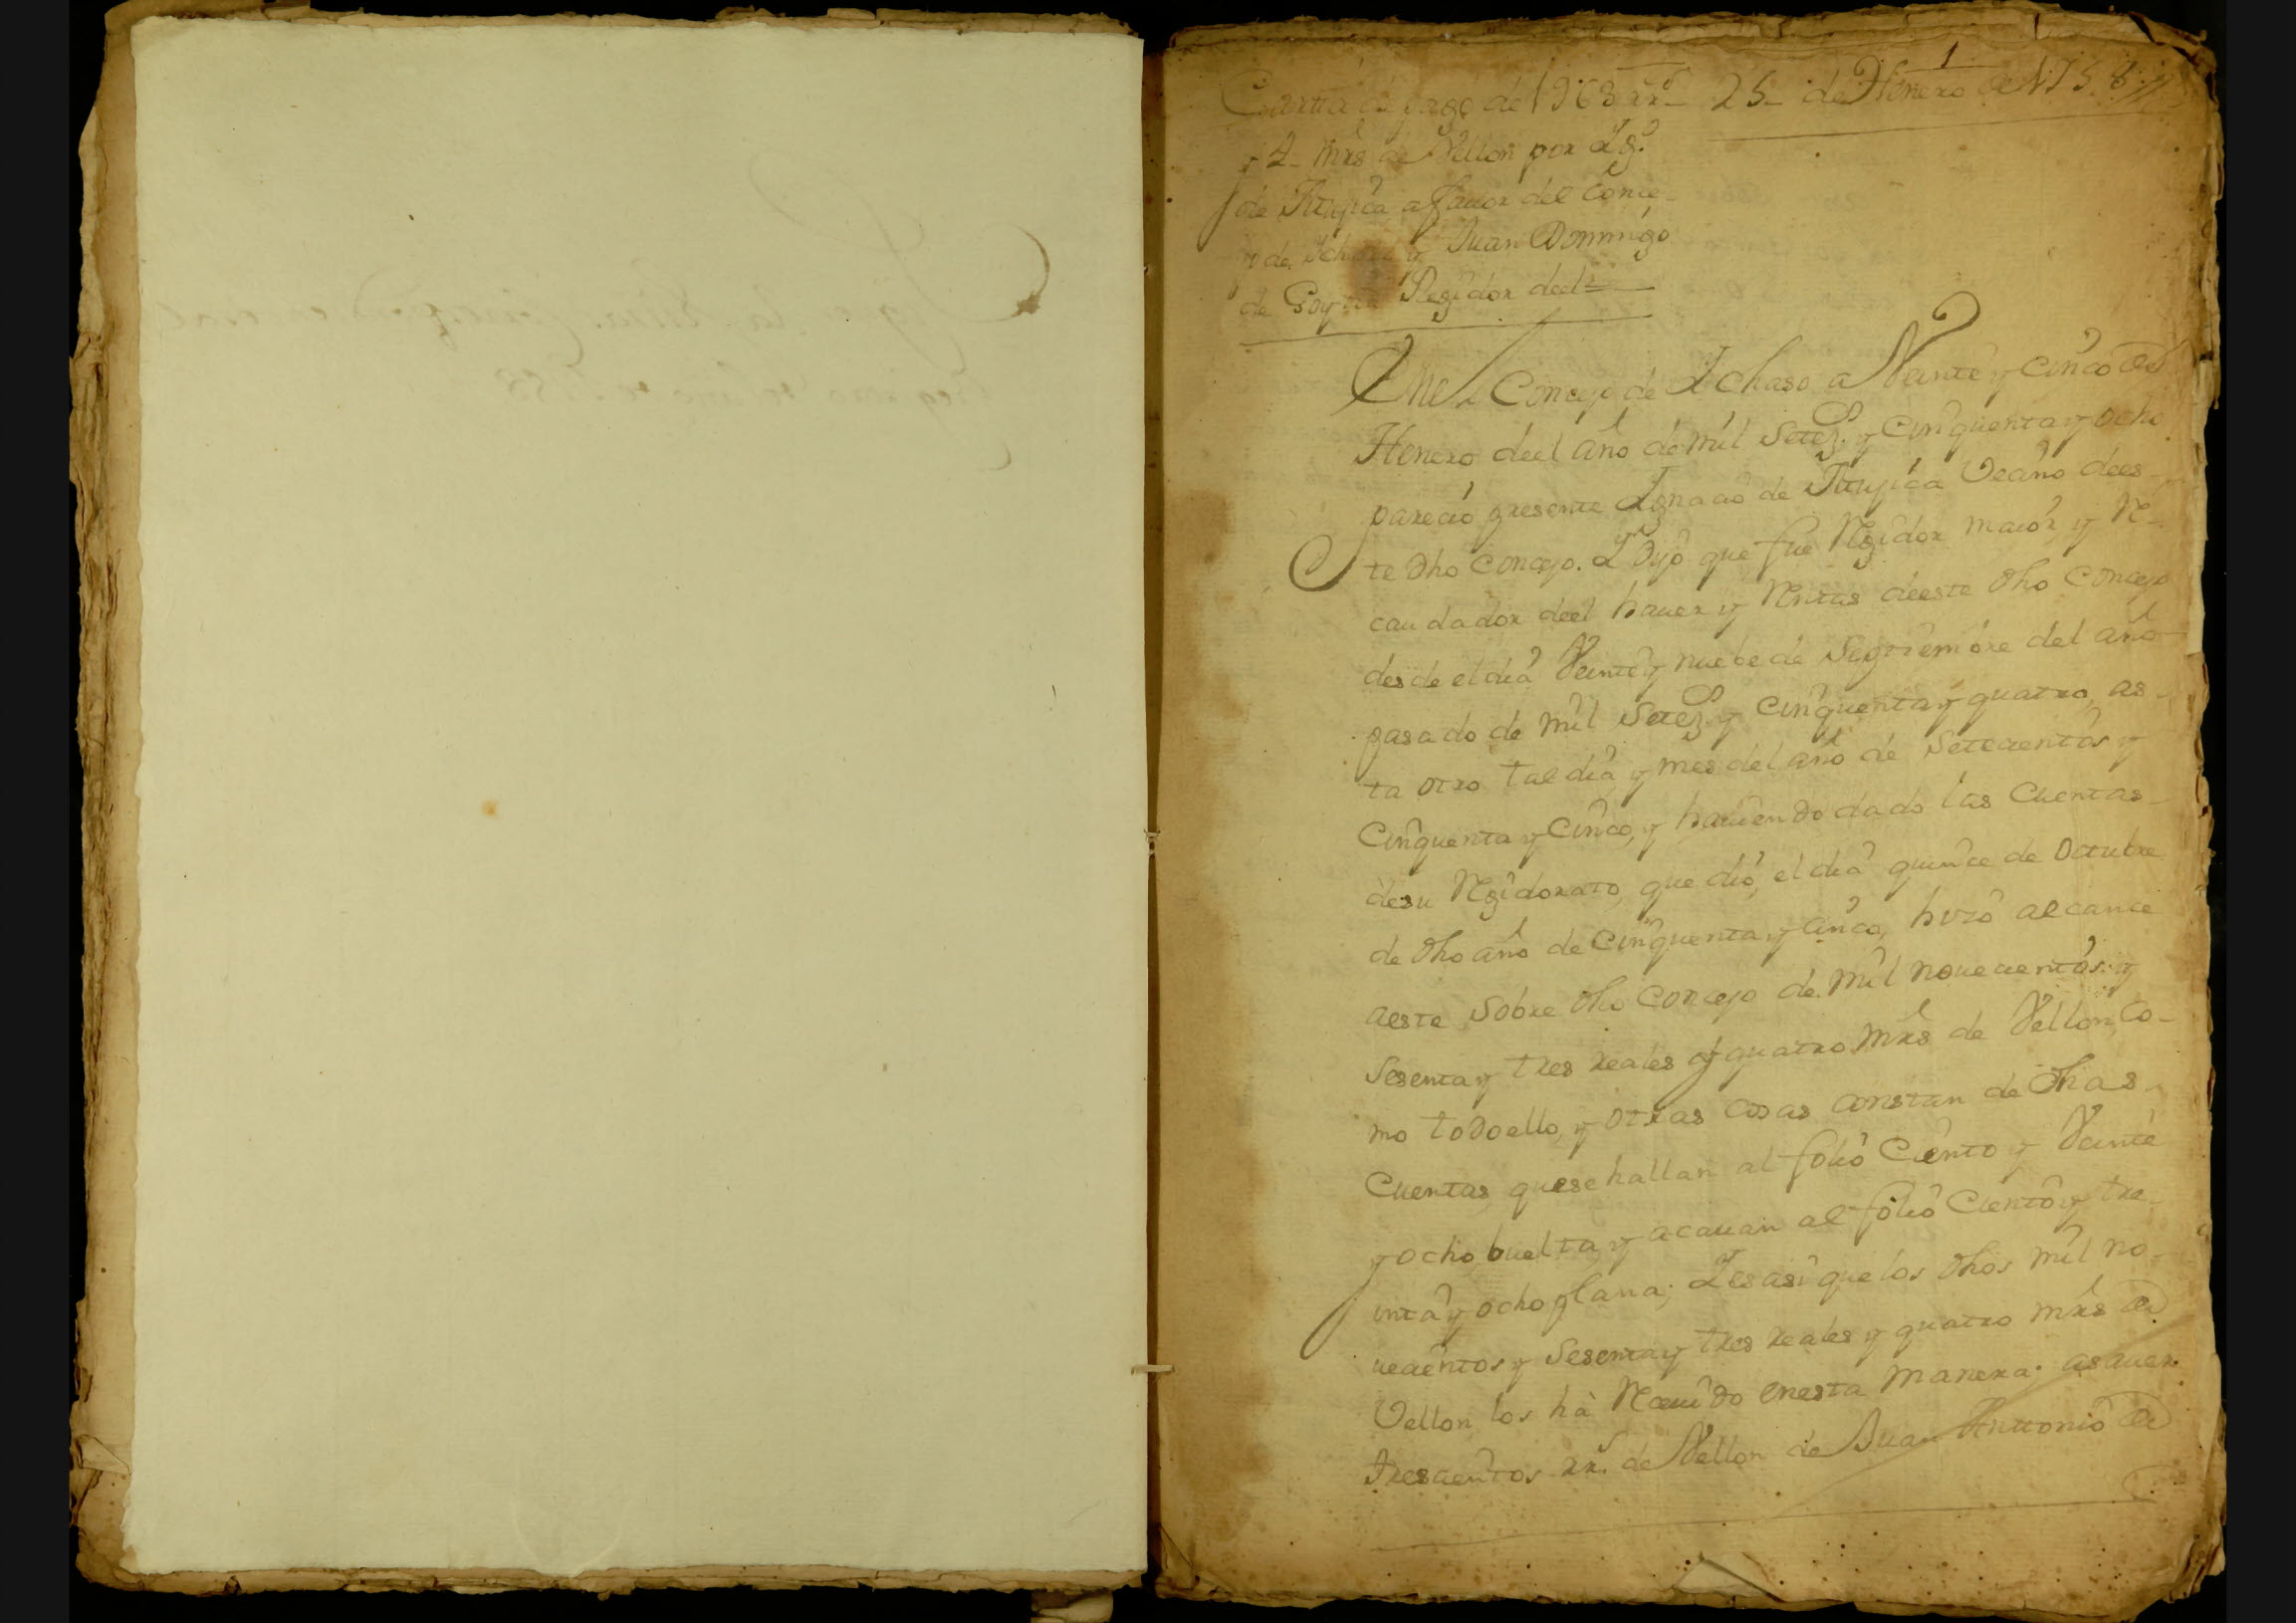 1
Carta de pago de 1963 rr.s 25 de Henero de 1758
y 4 mrs de Vellon por Ig.o
de Iruyica a fauor del Conce-
jo de Ichaso y Juan Domingo
de Goy Regidor deel
Enel Concejo de Ichaso a Veinte y cinco de
Henero deel año de mil Setez.s y Cinquenta y ocho
parecio presente Ignacio de Iruyica Vecino dees-
te dho Concejo. Y Dijo que fue Regidor maior, y Re-
caudador deel hauer y Rentas deeste dho Concejo
desde el dia Veinte y nuebe de Septiembre del año
pasado de mil Setez.s y Cinquenta y quatro, as-
ta otro tal dia y mes del año de Setecientos y
Cinquenta y Cinco, y hauiendo dado las Cuentas
desu Regidorato, que dió, el dia quince de Octubre
de dho año de Cinquenta y cinco, hizo alcance
aeste sobre dho Concejo de mil nouecientos y
Sesenta y tres reales y quatro mrs de Vellon, Co-
mo todo ello, y otras cosas constan de dhas
Cuentas, quese hallan al folio Ciento y Veinte
y ocho buelta, y acauan al folio Ciento y tre-
inta y ocho plana; Y es asi que los dhos mil no-
uecientos y Sesenta y tres reales y quatro mrs de
Vellon, los hà Receuido enesta manera. asauer.
Trescientos rr.s de Vellon de Juan Antonio de